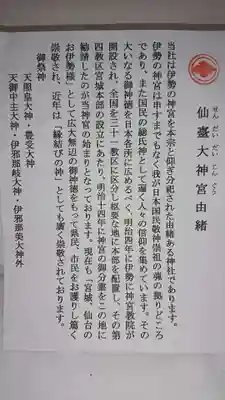 仙臺大神宮由緒
せんだいだいじんぐう
当社は伊勢の神宮を本宗と仰ぎ奉祀された由緒ある神社であります。
伊勢の神宮は申すまでもなく我が日本国民敬神崇祖の魂の拠りどころ
であり、また国民の総氏神として遍く人々の信仰を集めています。その
大いなる御神徳を日本各所に広めるべく、明治四年に伊勢に神宮教院が
開設され、全国を三十一教区に区分し枢要な地に本部を配置し、その第
四教区宮城本部の設置にあたり、明治十四年に神宮の御分霊をこの地に
勧請したのが当神宮の始まりとなっております。現在も「宮城、仙台の
お伊勢様」として広大無辺の御神徳をもって県民、市民をお護りし篤く
崇敬され、近年は「縁結びの神」としても広く崇敬されております。
御祭神
天照皇大神・豊受大神
天御中主大神・伊邪那岐大神・伊邪那美大神外